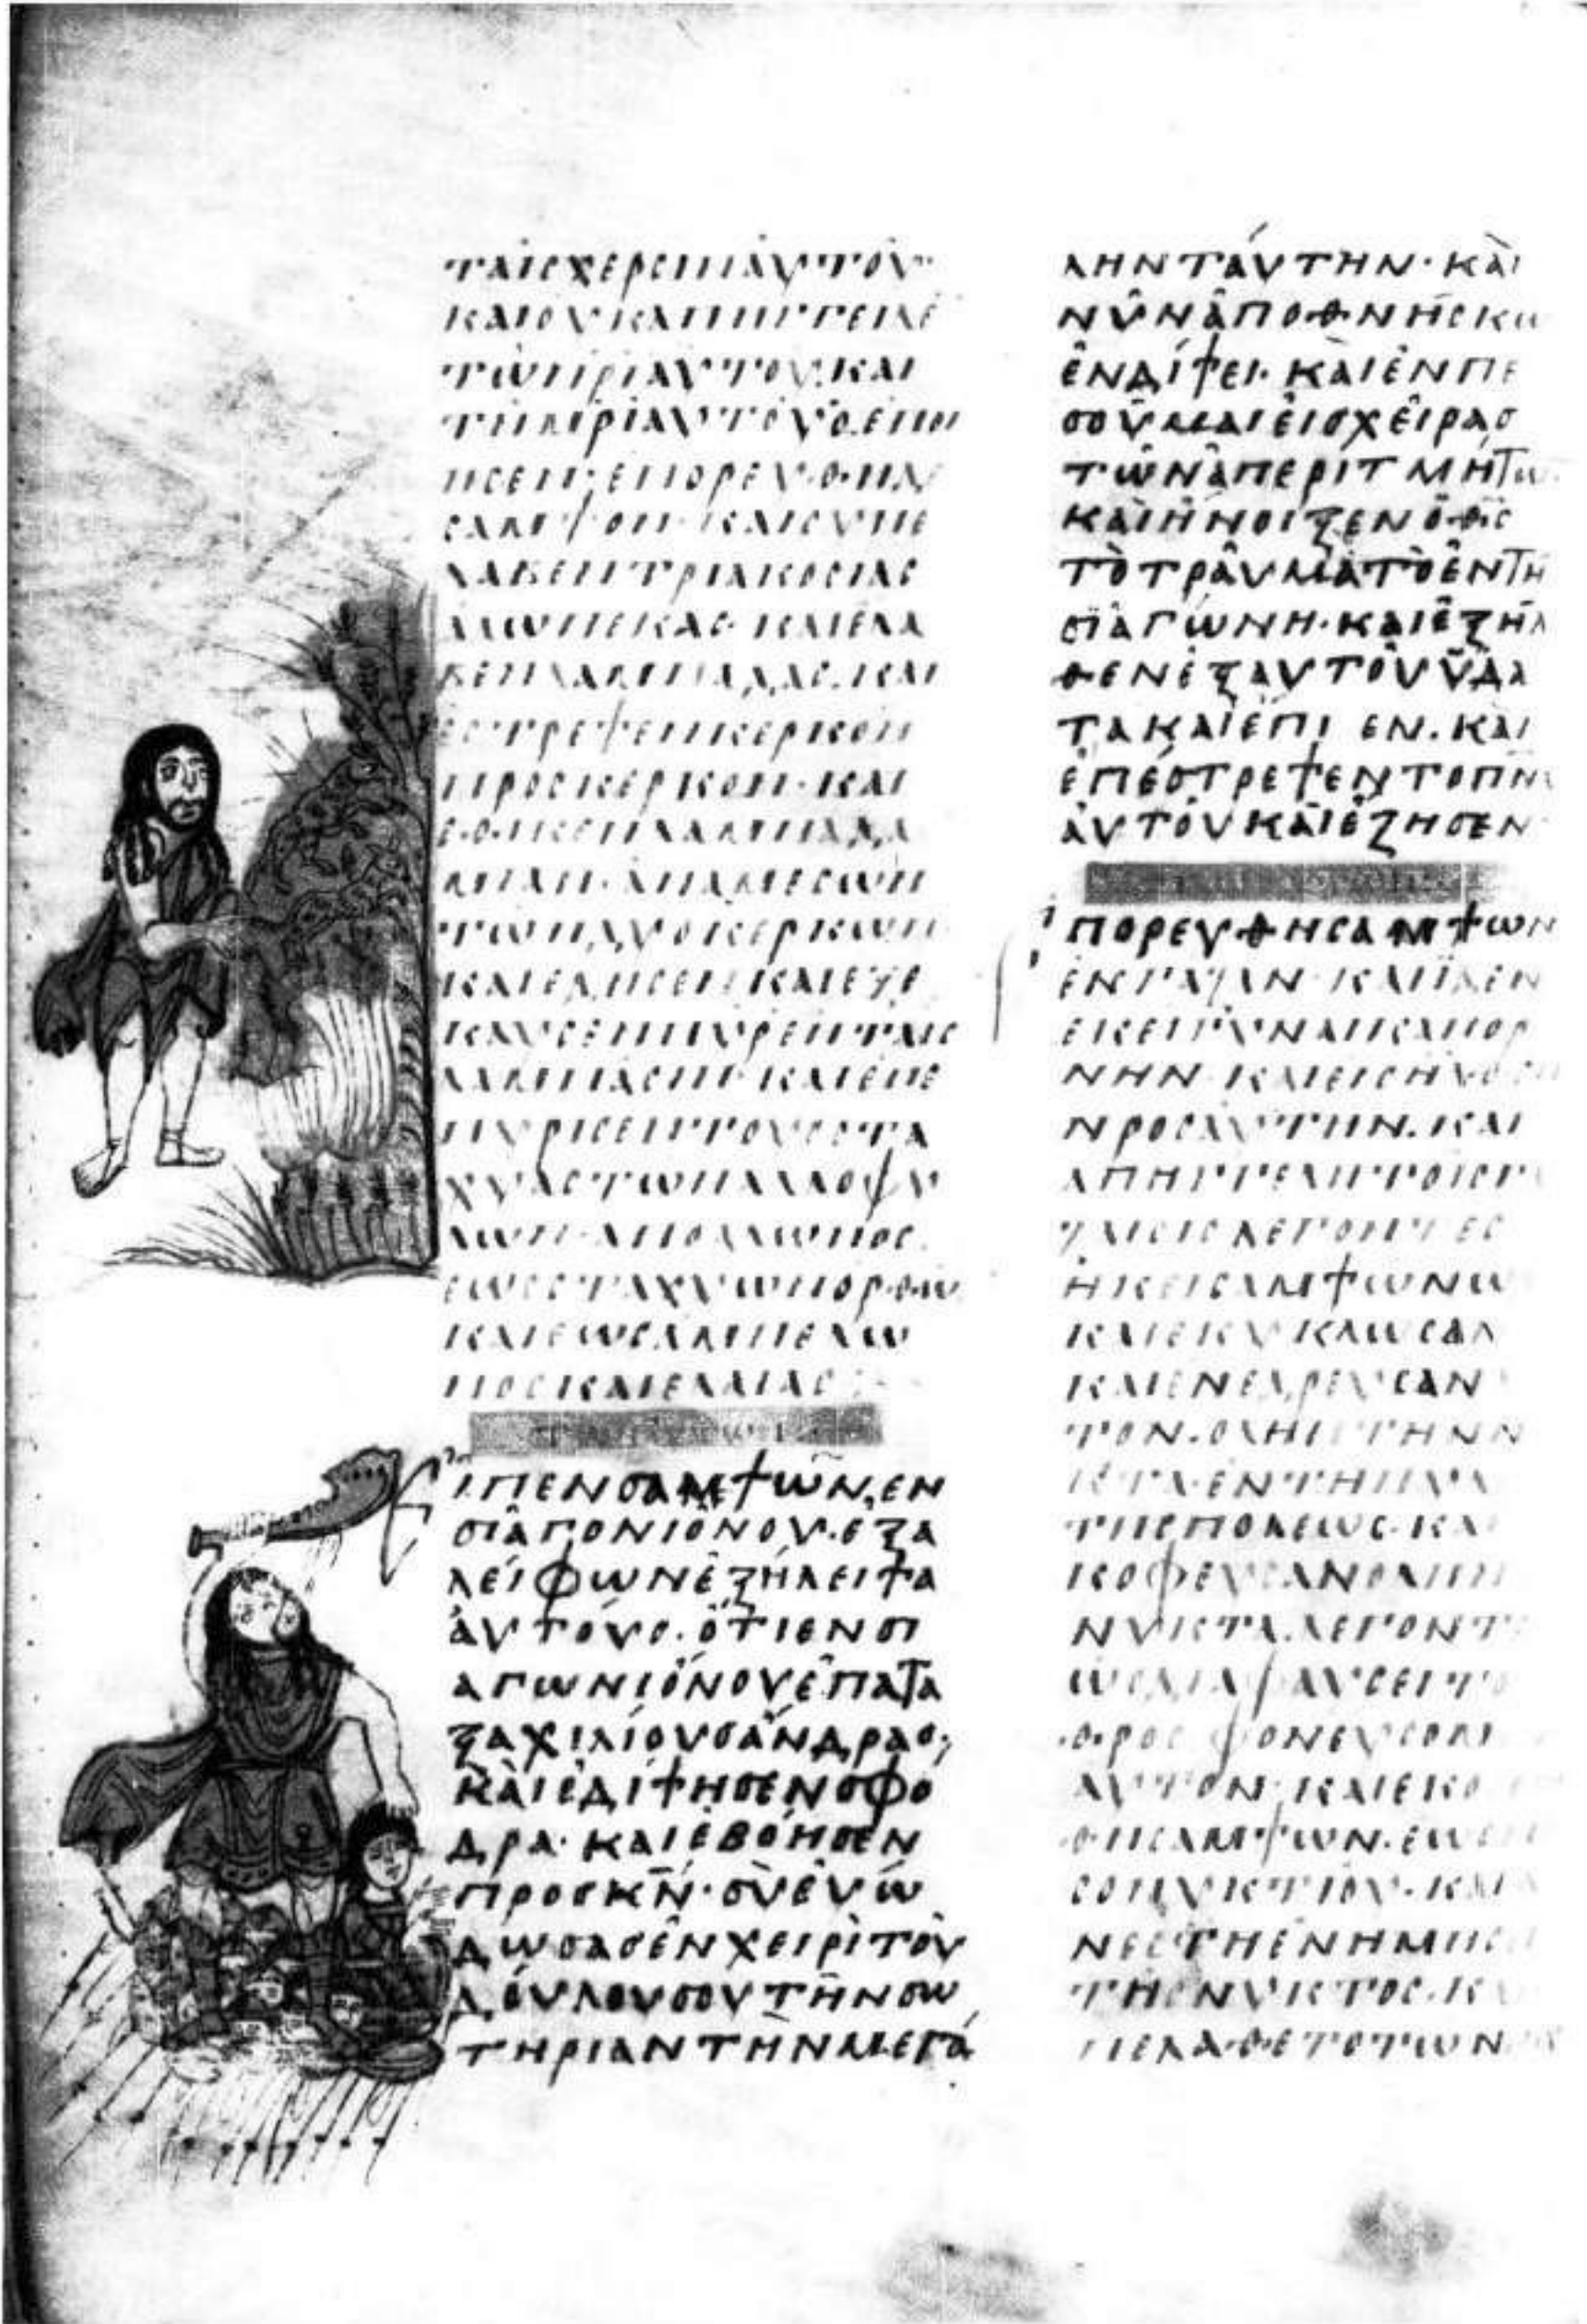 ταιςχερςιναυτου·
καιουκαπηγγειλε
τωπριαυτου·και
τημριαυτουὃεποι
ησεν·επορευθηδε
σαμψον·καισυνε
λαβεντριακοσιας
αλωπεκας·καιελα
βενλαμπαδας·και
εστρεψενκερκον
προςκερκον·και
εθηκενλαμπαδα
μιαν·αναμεσων
τωνδυοκερκων
καιεδησεν·καιεξε
καυσενπυρενταις
λαμπασιν·καιενε
πυρισεντουςστα
χυαςτωναλλοφυ
λων·απολλωνος
εωςσταχυωνορθω
καιεωςαμπελω
νοςκαιελαιας
ιπενσαμψῶν,εν
σιᾱγονιὄνου·εξα
λείφωνἐξήλειψα
ἀυτόυς·ὅτιενσι
αγωνιὄνουἐπατα
ξαχιλίουσἄνδρας;
κὰιἐδίψησενσφο
δρα·καιἐβόησεν
προσκν̄·σὺἐυώ
δωσασἐνχειρὶτοῦ
δόυλουσουτὴνσω
τηριαντὴνμεγά
ληντάυτην·κὰι
νῦνἀποθνήσκω
ἐνδίψει·κὰιἐνπε
σοῦμαιἐισχεῖρας
τῶνἀπεριτμήτω
κὰιἤνοιξενὁθς̄
τὸτρᾶυματὸἐντῆ
σϊἀγώνη·καιἐξῆλ
θενἐξαυτοῦὕδα
τακαὶἔπιεν·κὰι
ἐπέστρεψεντοπν̄α
ἀυτοῦκὰιἔζησεν·
πορευθησαμψων
ενγαζαν·καιϊδεν
εκειγυναικαπορ
νην·καιεισηλθε
προςαυτην·και
απηγγεληντοιςγ
ζαιοιςλεγοντες
ηκεισαμψωνω
καιεκυκλωσαν
καιενεδρευσαν
τον·οληντηνν
κτα·εντηπυλ
τηςπολεως·κα
κοφευσανολην
νυκτα·λεγοντ
ωςδιαφαυσειτο
θρος·φονευσομ
αυτον·καιεκο
θησαμψων·εως
σονυκτιου·και
νεστηενημισ
τηςνυκτος·κ
πελαθετοτων